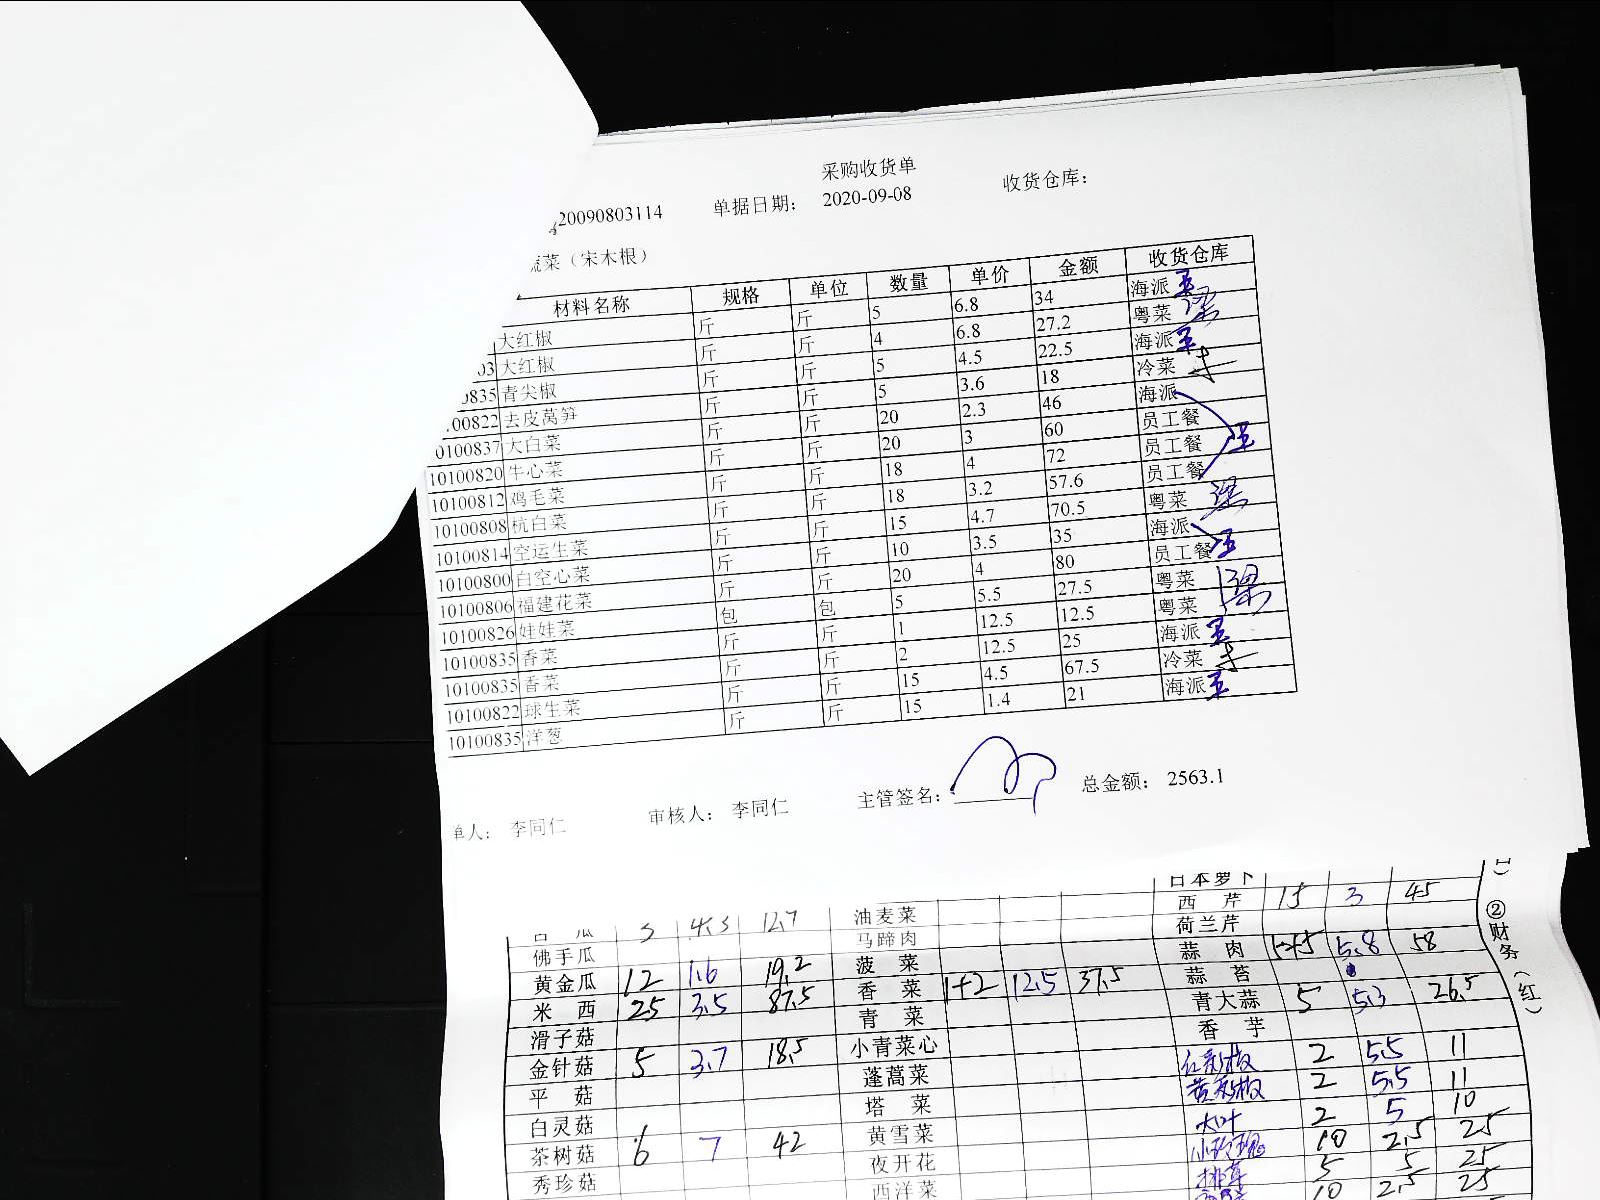 采购收货单
20090803114 单据日期: 2020-09-08 收货仓库:
菜（宋木根）
材料名称 规格 单位 数量 单价 金额 收货仓库
大红椒 斤 斤 5 6.8 34 海派 王
03 大红椒 斤 斤 4 6.8 27.2 粤菜 梁
835 青尖椒 斤 斤 5 4.5 22.5 海派 王
00822 去皮莴笋 斤 斤 5 3.6 18 冷菜
0100837 大白菜 斤 斤 20 2.3 46 海派
10100820 牛心菜 斤 斤 20 3 60 员工餐
10100812 鸡毛菜 斤 斤 18 4 72 员工餐 王
10100808 杭白菜 斤 斤 18 3.2 57.6 员工餐
10100814 空运生菜 斤 斤 15 4.7 70.5 粤菜 梁
10100800 白空心菜 斤 斤 10 3.5 35 海派
10100806 福建花菜 斤 斤 20 4 80 员工餐 王
10100826 娃娃菜 包 包 5 5.5 27.5 粤菜 梁
10100835 香菜 斤 斤 1 12.5 12.5 粤菜
10100835 香菜 斤 斤 2 12.5 25 海派 王
10100822 球生菜 斤 斤 15 4.5 67.5 冷菜
10100835 洋葱 斤 斤 15 1.4 21 海派 王
单人: 李同仁 审核人: 李同仁 主管签名: 总金额: 2563.1
日本萝卜
瓜 油麦菜 西芹 15 3 45
佛手瓜 马蹄肉 荷兰芹
黄金瓜 12 1.6 19.2 菠菜 蒜肉 5.8 58
米西 25 3.5 87.5 香菜 1+2 12.5 37.5 蒜苔
滑子菇 青菜 青大蒜 5 5.3 26.5
金针菇 5 3.7 18.5 小青菜心 香芋
平菇 蓬蒿菜 红彩椒 2 5.5 11
白灵菇 塔菜 黄彩椒 2 5.5 11
茶树菇 6 7 42 黄雪菜 大叶 2 5 10
秀珍菇 夜开花 10 2.5 25
西洋菜 5 5 25
10 2.5 25
②财务（红）